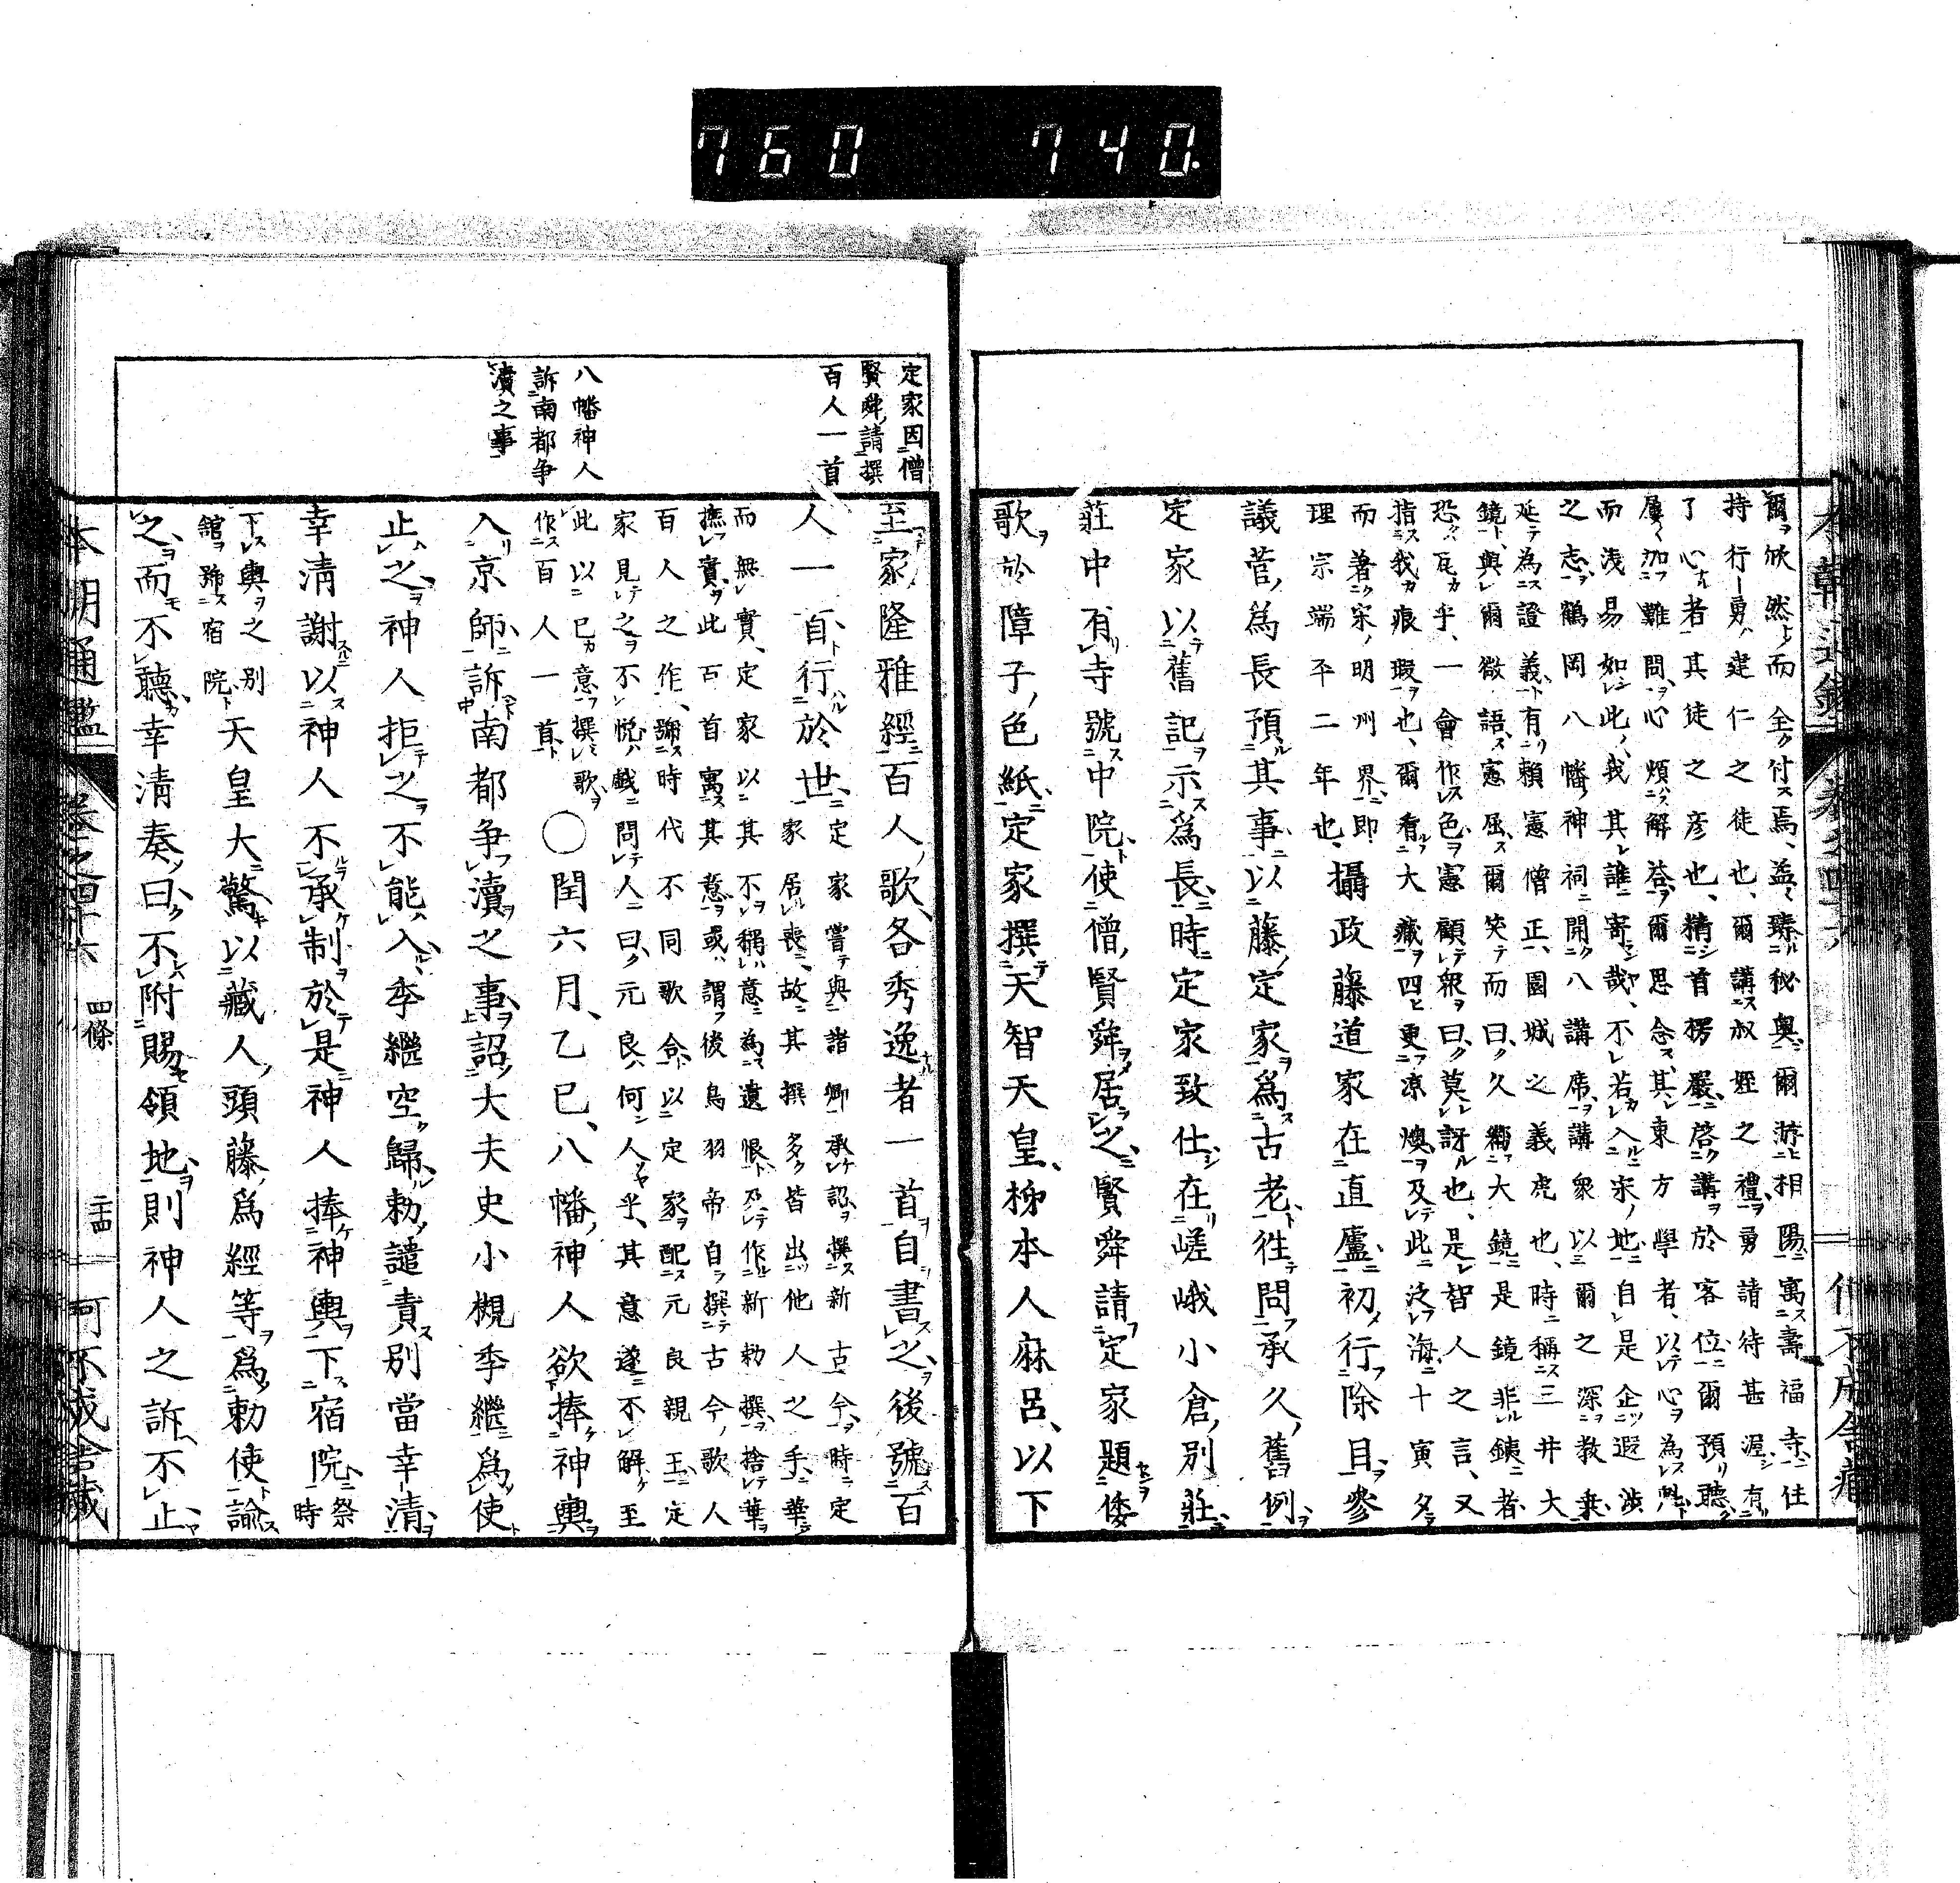 760 740.
爾欣然而全付焉益臻秘奧爾游相陽寓壽福寺住
持行勇建仁之徒也爾講叔姪之禮勇請待甚渥有
了心者其徒之彦也精首楞嚴啓講於客位爾預聽
屢加難問心煩解荅爾思念其東方學者以心為
而浅易如此我其誰寄哉不若入宋地自是企遐渉
之志鶴岡八幡神祠開八講席講衆以爾之深教乗
延為證義有賴憲僧正園城之義虎也時稱三井大
鏡與爾徴語憲屈爾笑而曰久嚮大鏡是鏡非銕者
恐瓦乎一會作色憲顧衆曰莫訝也是智人之言又
指我痕瑕也爾看大藏四更凉燠及此泛海十寅夕
而著宋明州界即
理宗端平二年也攝政藤道家在直盧初行除目參
議菅為長預其事以藤定家為古老往問承久舊例
定家以舊記示為長時定家致仕在嵯峨小倉別莊
莊中有寺號中院使僧賢舜居之賢舜請定家題倭
歌於障子色紙定家撰天智天皇柿本人麻呂以下
定家因僧
賢舜請撰
百人一首
八幡神人
訴南都争
瀆之事
至家隆雅經百人歌各秀逸者一首自書之後號百
人一首行於世
定家嘗與諸卿承詔撰新古今時定
家居喪故其撰多皆出他人之手華
而無實定家以其不稱意為遺恨及作新勅撰捨華
撫實此百首寓其意或謂後鳥羽帝自撰古今歌人
百人之作謝時代不同歌合以定家配元良親王定
家見之不悦戲問人曰元良何人乎其意遂不解至
此以已意撰歌
作百人一首
〇閏六月乙巳八幡神人欲捧神輿
入京師訴南都争瀆之事詔大夫史小槻季繼為使
止之神人拒之不能入季繼空歸勅譴責別當幸清
幸清謝以神人不承制於是神人捧神輿下宿院
祭時
下輿之別
舘號宿院
天皇大驚以藏人頭藤為經等為勅使諭
之而不聽幸清奏曰不附賜領地則神人之訴不止
本朝通鑑
卷之四十六
四條
二十四